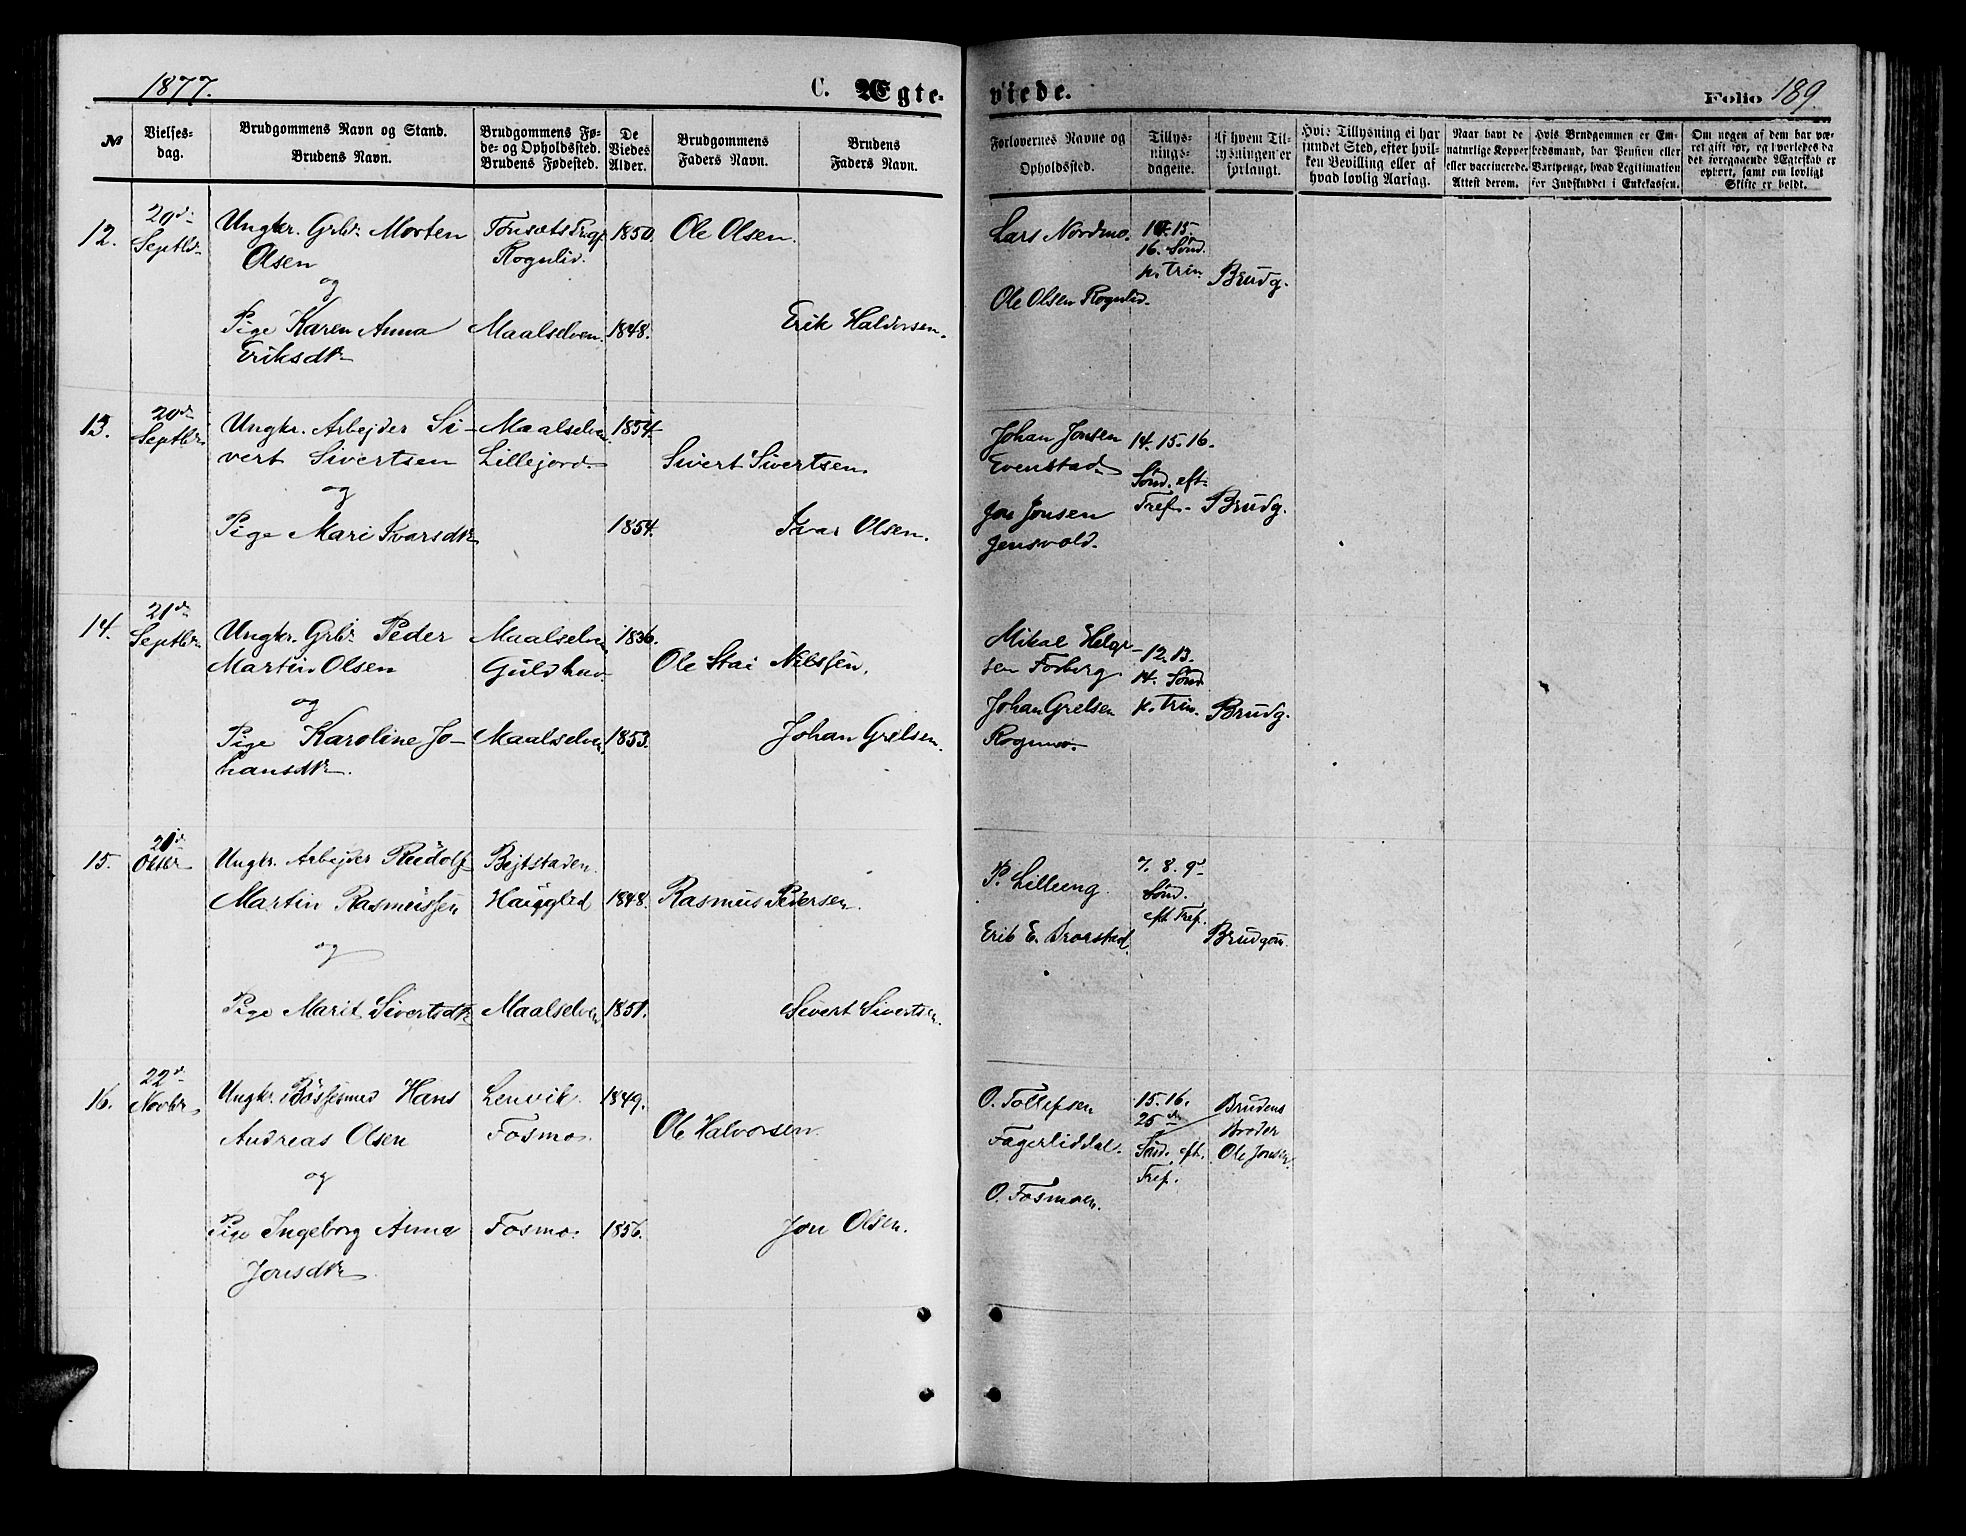 1877.
C. Ægte-
viede.
Folio 189
№
Vielses-
dag.
Brudgommens Navn og Stand.
Brudens Navn.
Brudgommens Fø-
de- og Opholdssted.
Brudens Fødested.
De
Viedes
Alder.
Brudgommens
Faders Navn.
Brudens
Faders Navn.
Forlovernes Navne og
Opholdssted.
Tillys-
nings-
dagene.
Af hvem Til-
lysningen er
forlangt.
Hvis Tillysning ei har
fundet Sted, efter hvil-
ken Bevilling eller af
hvad lovlig Aarsag.
Naar havt de
naturlige Kopper
eller vaccinerede.
Attest derom.
Hvis Brudgommen er Em-
bedsmand, har Pension eller
Vartpenge, hvad Legitimation
for Indskuddet i Enkekassen.
Om nogen af dem har væ-
ret gift før, og hvorledes da
det foregaaende Ægteskab er
ophørt, samt om lovligt
Skifte er holdt.
12.
20de
Septbr
Ungkr. Grbr. Morten
Olsen
og
Pige Karen Anna
Eriksdtr
Tonsæts Prgj
Rognlid.
Maalselven.
1850.
1848.
Ole Olsen.
Erik Haldorsen.
Lars Nordmo.
Ole Olsen Rognlid.
14. 15.
16. Sønd.
p. Trin.
Brudg.
13.
20de
Septbr
Ungkr. Arbejder Si-
vert Sivertsen
og
Pige Mari Ivarsdtr
Maalselven.
Lillejord.
1854.
1854.
Sivert Sivertsen.
Ivar Olsen.
Johan Jonsen
Evenstad
Jon Jonsen
Jensvold.
14. 15. 16.
Sønd. eft.
Tref.
Brudg.
14.
21de
Septbr
Ungkr. Grbr. Peder
Martin Olsen
og
Pige Karoline Jo-
hansdtr.
Maalselven
Guldhav
Maalselven
1836.
1853.
Ole Stai Nilssen.
Johan Grelsen.
Mikal Helge-
sen Fosberg
Johan Grelsen
Rognmo.
12. 13.
14. Sønd
p. Trin.
Brudg.
15.
21de
Oktbr
Ungkr. Arbejder Rudolf
Martin Rasmussen
og
Pige Marit Sivertsdtr
Bejtstaden.
Hauglid
Maalselven
1848.
1851.
Rasmus Pedersen.
Sivert Sivertsen.
P. Lilleeng.
Erik E.
7. 8. 9de
Sønd.
eft. Tref.
Brudgom.
16.
22de
Novbr
Ungkr. Bøssesmed Hans
Andreas Olsen
og
Pige Ingeborg Anna
Jonsdtr
Lenvik
Fosmo.
Fosmo.
1849.
1856.
Ole Halvorsen.
Jon Olsen.
O. Tollefsen
Fagerliddal.
O. Fosmoen.
15. 16.
25de
Sønd. eft.
Tref.
Brudens
Broder
Ole Jonsen.